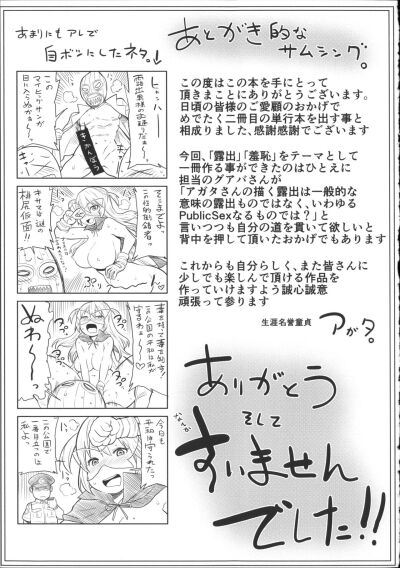 あとがき的な
サムシング。
この度はこの本を手にとって
頂きまことにありがとうございます。
日頃の皆様のご愛顧のおかげで
めでたく二冊目の単行本を出す事と
相成りました、感謝感謝でございます
今回、「露出」「羞恥」をテーマとして
一冊作る事ができたのはひとえに
担当のグアバさんが
「アガタさんの描く露出は一般的な
意味の露出ものではなく、いわゆる
PublicSexなるものでは?」と
言いつつも自分の道を貫いて欲しいと
背中を押して頂いたおかげでもあります
これからも自分らしく、また皆さんに
少しでも楽しんで頂ける作品を
作っていけますよう誠心誠意
頑張って参ります
生涯名誉童貞
アガタ。
ありがとう
そして
すいません
でした!!
あまりにもアレで
自ボツにしたネタ。
ヒャッハー
マイビッグサンが
キサマは謎の
痴女仮面!!
ぬわ〜〜
今日も
平和は守られた
この公園で
一番目立つのは
私よっ